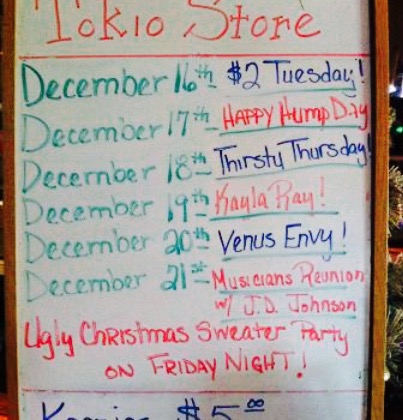 Tokio Store
December 16th - $2 Tuesday!
December 17th - Happy Hump Day
December 18th - Thirsty Thursday!
December 19th - Kayla Ray!
December 20th - Venus Envy!
December 21st - Musicians Reunion
w/ J.D. Johnson
Ugly Christmas Sweater Party
on Friday Night!
$5.00